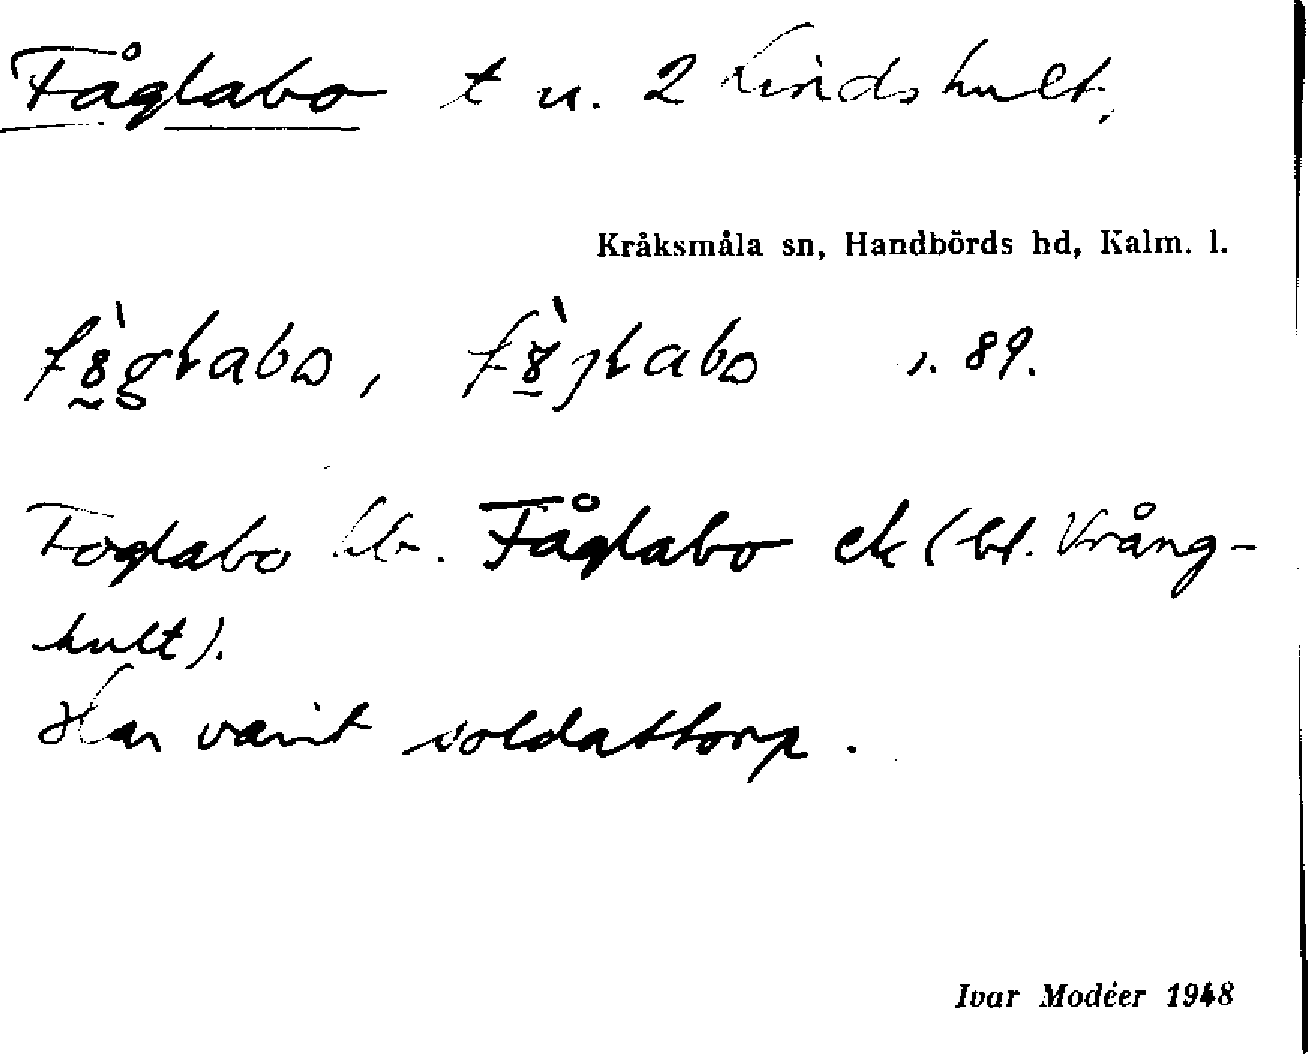 Fåglabo t u. 2 Lindshult.
Kråksmåla sn, Handbörds hd, Kalm. l.
s. 89.
Foglabo Fåglabo ek (bl. Vrång-
hult).
Har varit soldattorp.
Ivar Modéer 1948